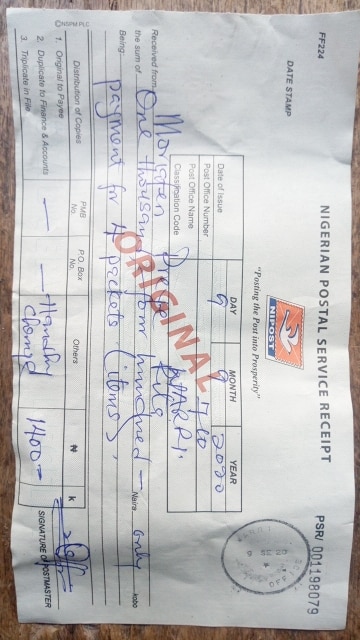 FF224
NIGERIAN POSTAL SERVICE RECEIPT
PSR/ 001198079
DATE STAMP
"Posting the Post into Prosperity"
NIPOST
DAY MONTH YEAR
Date of Issue 9 9 2020
Post Office Number
Post Office Name
Classification Code
ORIGINAL
Received from
the sum of One thousand four hundred - Naira only kobo
Being: payment for 4 packets (items),
Distribution of Copies
1. Original to Payee
2. Duplicate to Finance & Accounts
3. Triplicate in File
PMB No. P.O. Box No. Others ₦ k
— — 1400 =
SIGNATURE OF POSTMASTER
©NSPM PLC